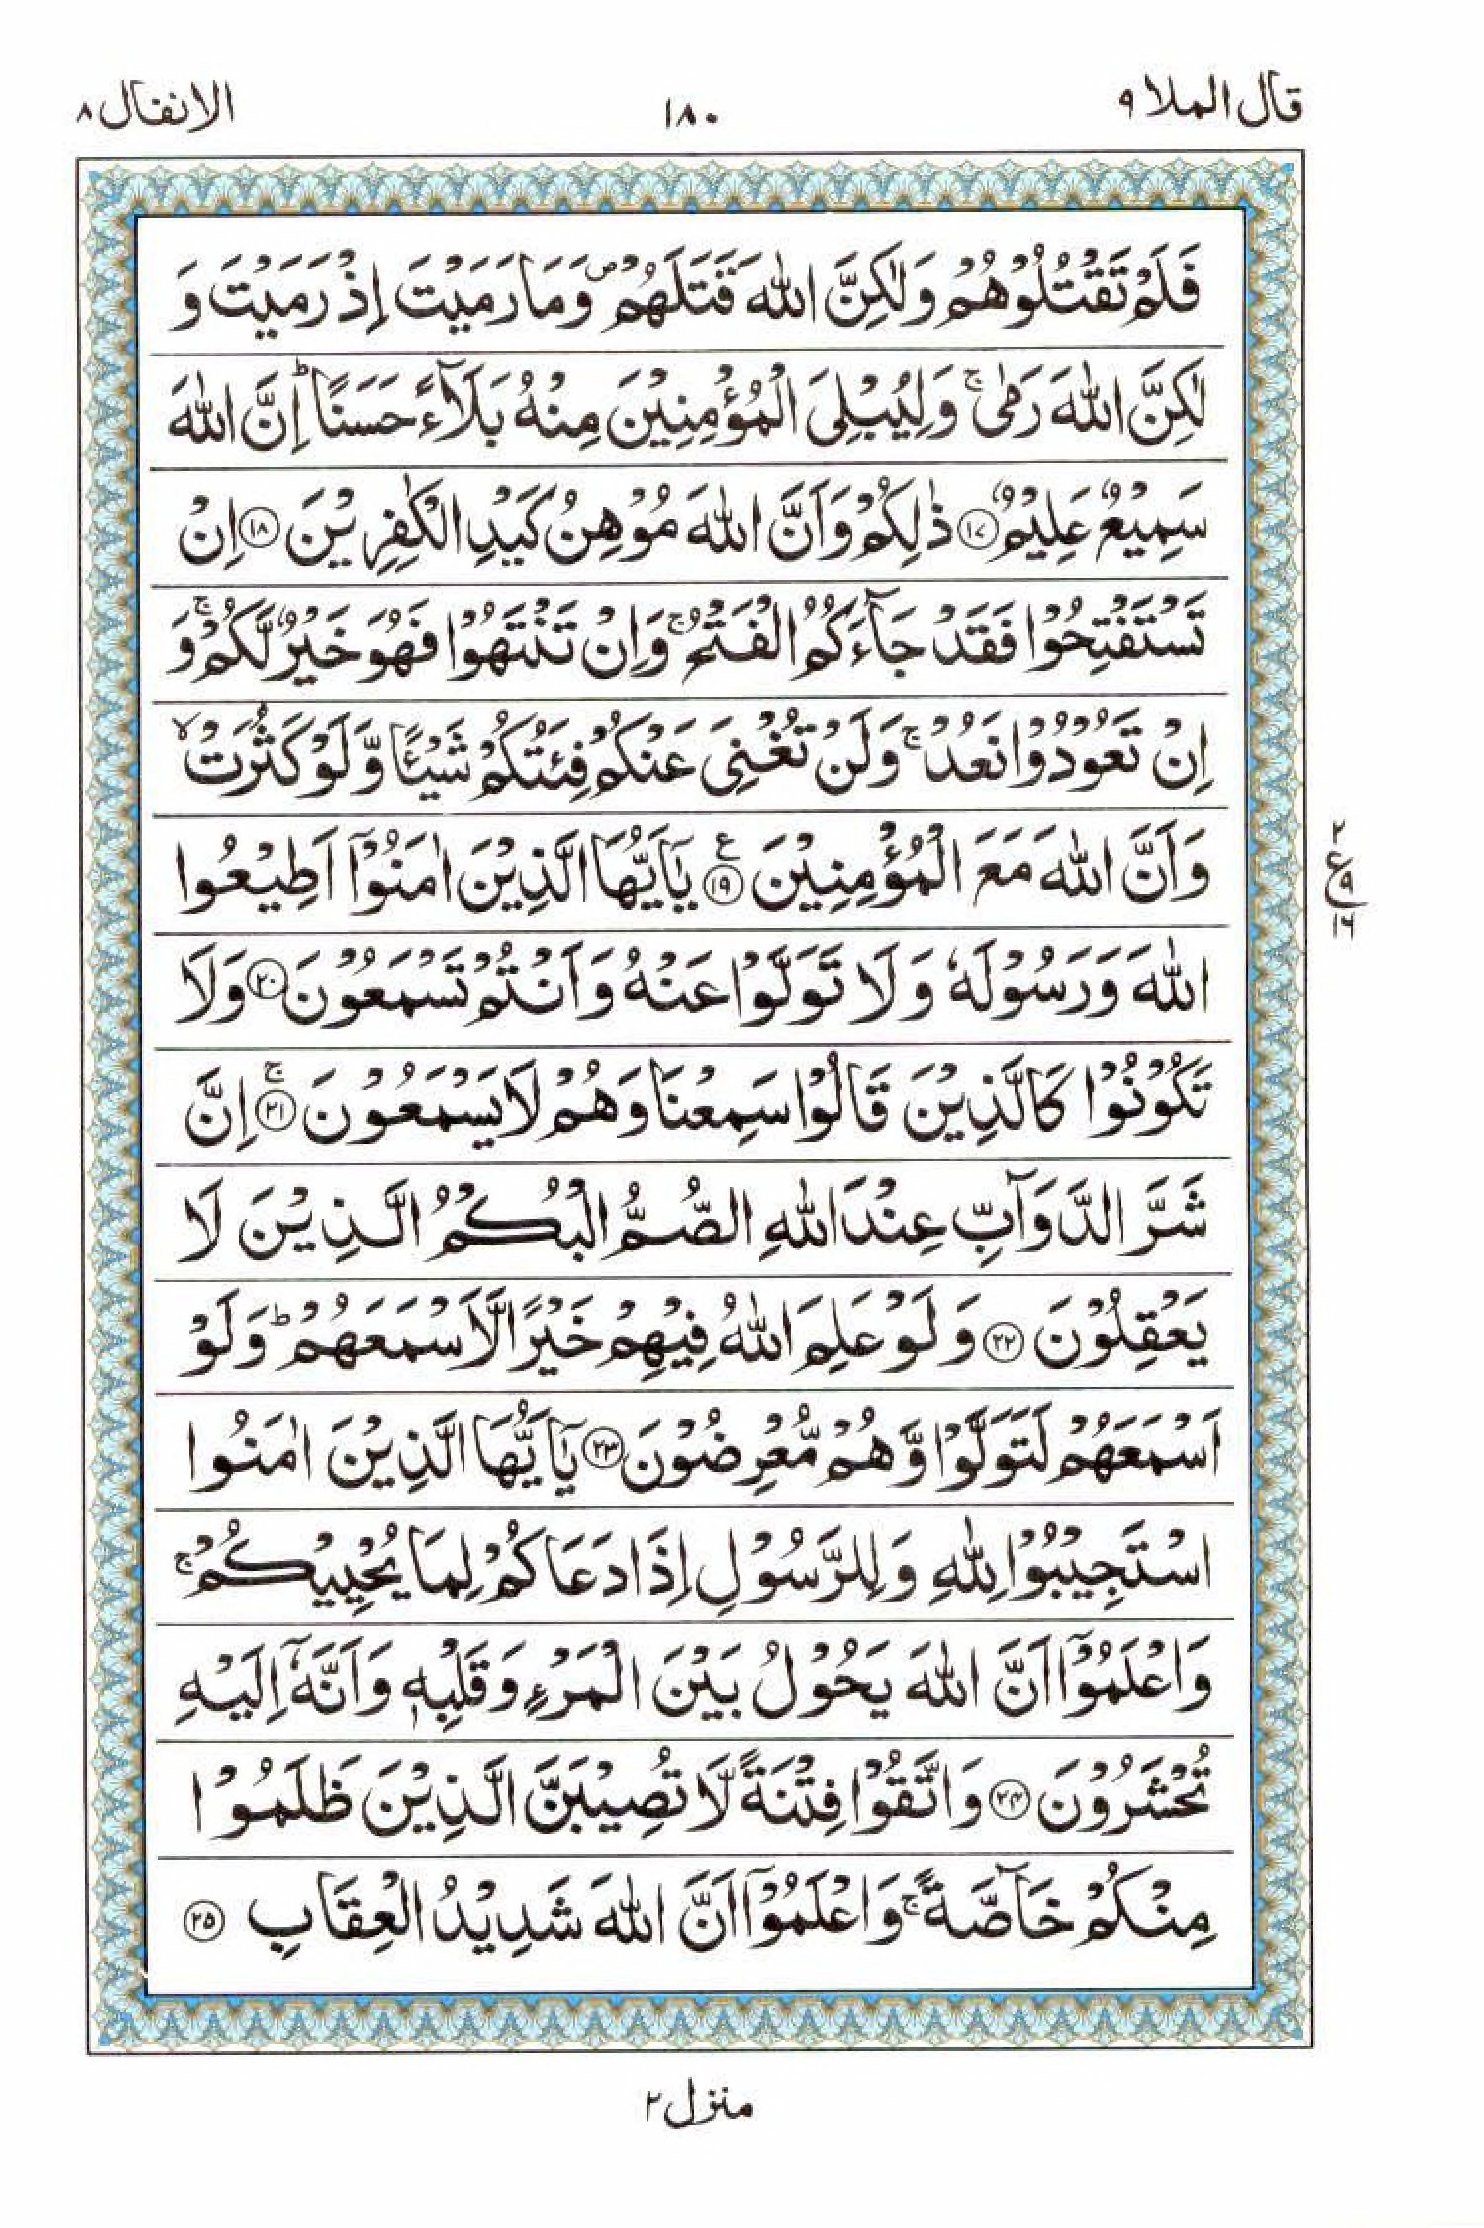 قال الملا ٩
١٨٠
الانفال ٨
فَلَمْ تَقْتُلُوْهُمْ وَلٰكِنَّ اللّٰهَ قَتَلَهُمْ ۪ وَمَا رَمَيْتَ اِذْ رَمَيْتَ وَ
لٰكِنَّ اللّٰهَ رَمٰى ۚ وَلِيُبْلِيَ الْمُؤْمِنِيْنَ مِنْهُ بَلَآءً حَسَنًا ؕ اِنَّ اللّٰهَ
سَمِيْعٌ عَلِيْمٌ ﴿۱۷﴾ ذٰلِكُمْ وَاَنَّ اللّٰهَ مُوْهِنُ كَيْدِ الْكٰفِرِيْنَ ﴿۱۸﴾ اِنْ
تَسْتَفْتِحُوْا فَقَدْ جَآءَكُمُ الْفَتْحُ ۚ وَاِنْ تَنْتَهُوْا فَهُوَ خَيْرٌ لَّكُمْ ۚ وَ
اِنْ تَعُوْدُوْا نَعُدْ ۚ وَلَنْ تُغْنِيَ عَنْكُمْ فِئَتُكُمْ شَيْـًٔا وَّلَوْ كَثُرَتْ ۙ
وَاَنَّ اللّٰهَ مَعَ الْمُؤْمِنِيْنَ ﴿۱۹﴾ ع يٰۤاَيُّهَا الَّذِيْنَ اٰمَنُوْۤا اَطِيْعُوا
٢ ع ٩ ١٦
اللّٰهَ وَرَسُوْلَهٗ وَلَا تَوَلَّوْا عَنْهُ وَاَنْتُمْ تَسْمَعُوْنَ ﴿۲۰﴾ وَلَا
تَكُوْنُوْا كَالَّذِيْنَ قَالُوْا سَمِعْنَا وَهُمْ لَا يَسْمَعُوْنَ ﴿۲۱﴾ ۚ اِنَّ
شَرَّ الدَّوَآبِّ عِنْدَ اللّٰهِ الصُّمُّ الْبُكْمُ الَّذِيْنَ لَا
يَعْقِلُوْنَ ﴿۲۲﴾ وَلَوْ عَلِمَ اللّٰهُ فِيْهِمْ خَيْرًا لَّاَسْمَعَهُمْ ؕ وَلَوْ
اَسْمَعَهُمْ لَتَوَلَّوْا وَّهُمْ مُّعْرِضُوْنَ ﴿۲۳﴾ يٰۤاَيُّهَا الَّذِيْنَ اٰمَنُوا
اسْتَجِيْبُوْا لِلّٰهِ وَلِلرَّسُوْلِ اِذَا دَعَاكُمْ لِمَا يُحْيِيْكُمْ ۚ
وَاعْلَمُوْۤا اَنَّ اللّٰهَ يَحُوْلُ بَيْنَ الْمَرْءِ وَقَلْبِهٖ وَاَنَّهٗۤ اِلَيْهِ
تُحْشَرُوْنَ ﴿۲۴﴾ وَاتَّقُوْا فِتْنَةً لَّا تُصِيْبَنَّ الَّذِيْنَ ظَلَمُوْا
مِنْكُمْ خَآصَّةً ۚ وَاعْلَمُوْۤا اَنَّ اللّٰهَ شَدِيْدُ الْعِقَابِ ﴿۲۵﴾
منزل ٢